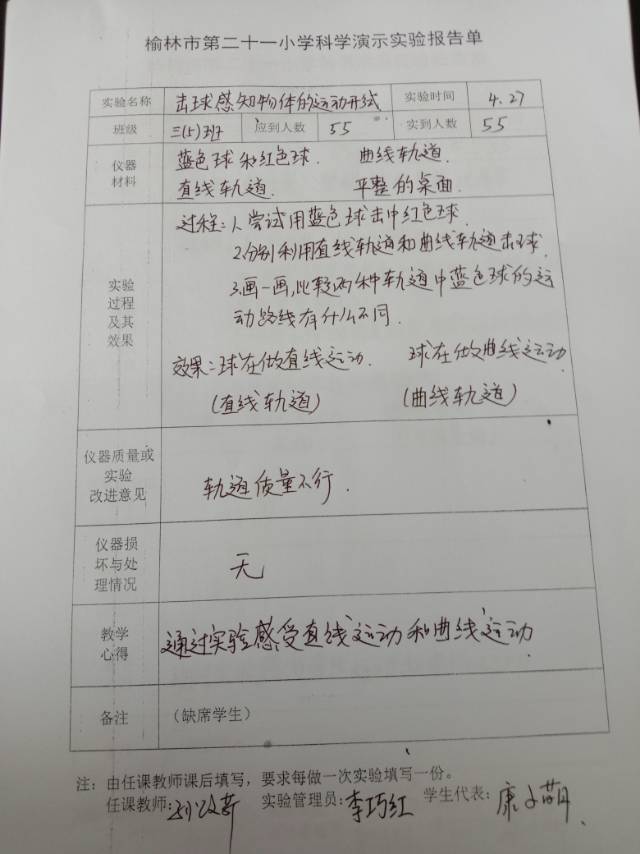 榆林市第二十一小学科学演示实验报告单
实验名称 击球感知物体的运动形式 实验时间 4.27
班级 三(5)班 应到人数 55 实到人数 55
仪器材料
蓝色球和红色球. 曲线轨道.
直线轨道. 平整的桌面.
实验过程及其效果
过程:1.尝试用蓝色球击中红色球.
2.分别利用直线轨道和曲线轨道击球.
3.画一画,比较两种轨道中蓝色球的运
动路线有什么不同.
效果:球在做直线运动. 球在做曲线运动.
(直线轨道) (曲线轨道)
仪器质量或实验改进意见
轨道质量不行.
仪器损坏与处理情况
无
教学心得
通过实验感受直线运动和曲线运动.
备注 (缺席学生)
注:由任课教师课后填写,要求每做一次实验填写一份。
任课教师: 实验管理员:李巧红 学生代表:康子萌